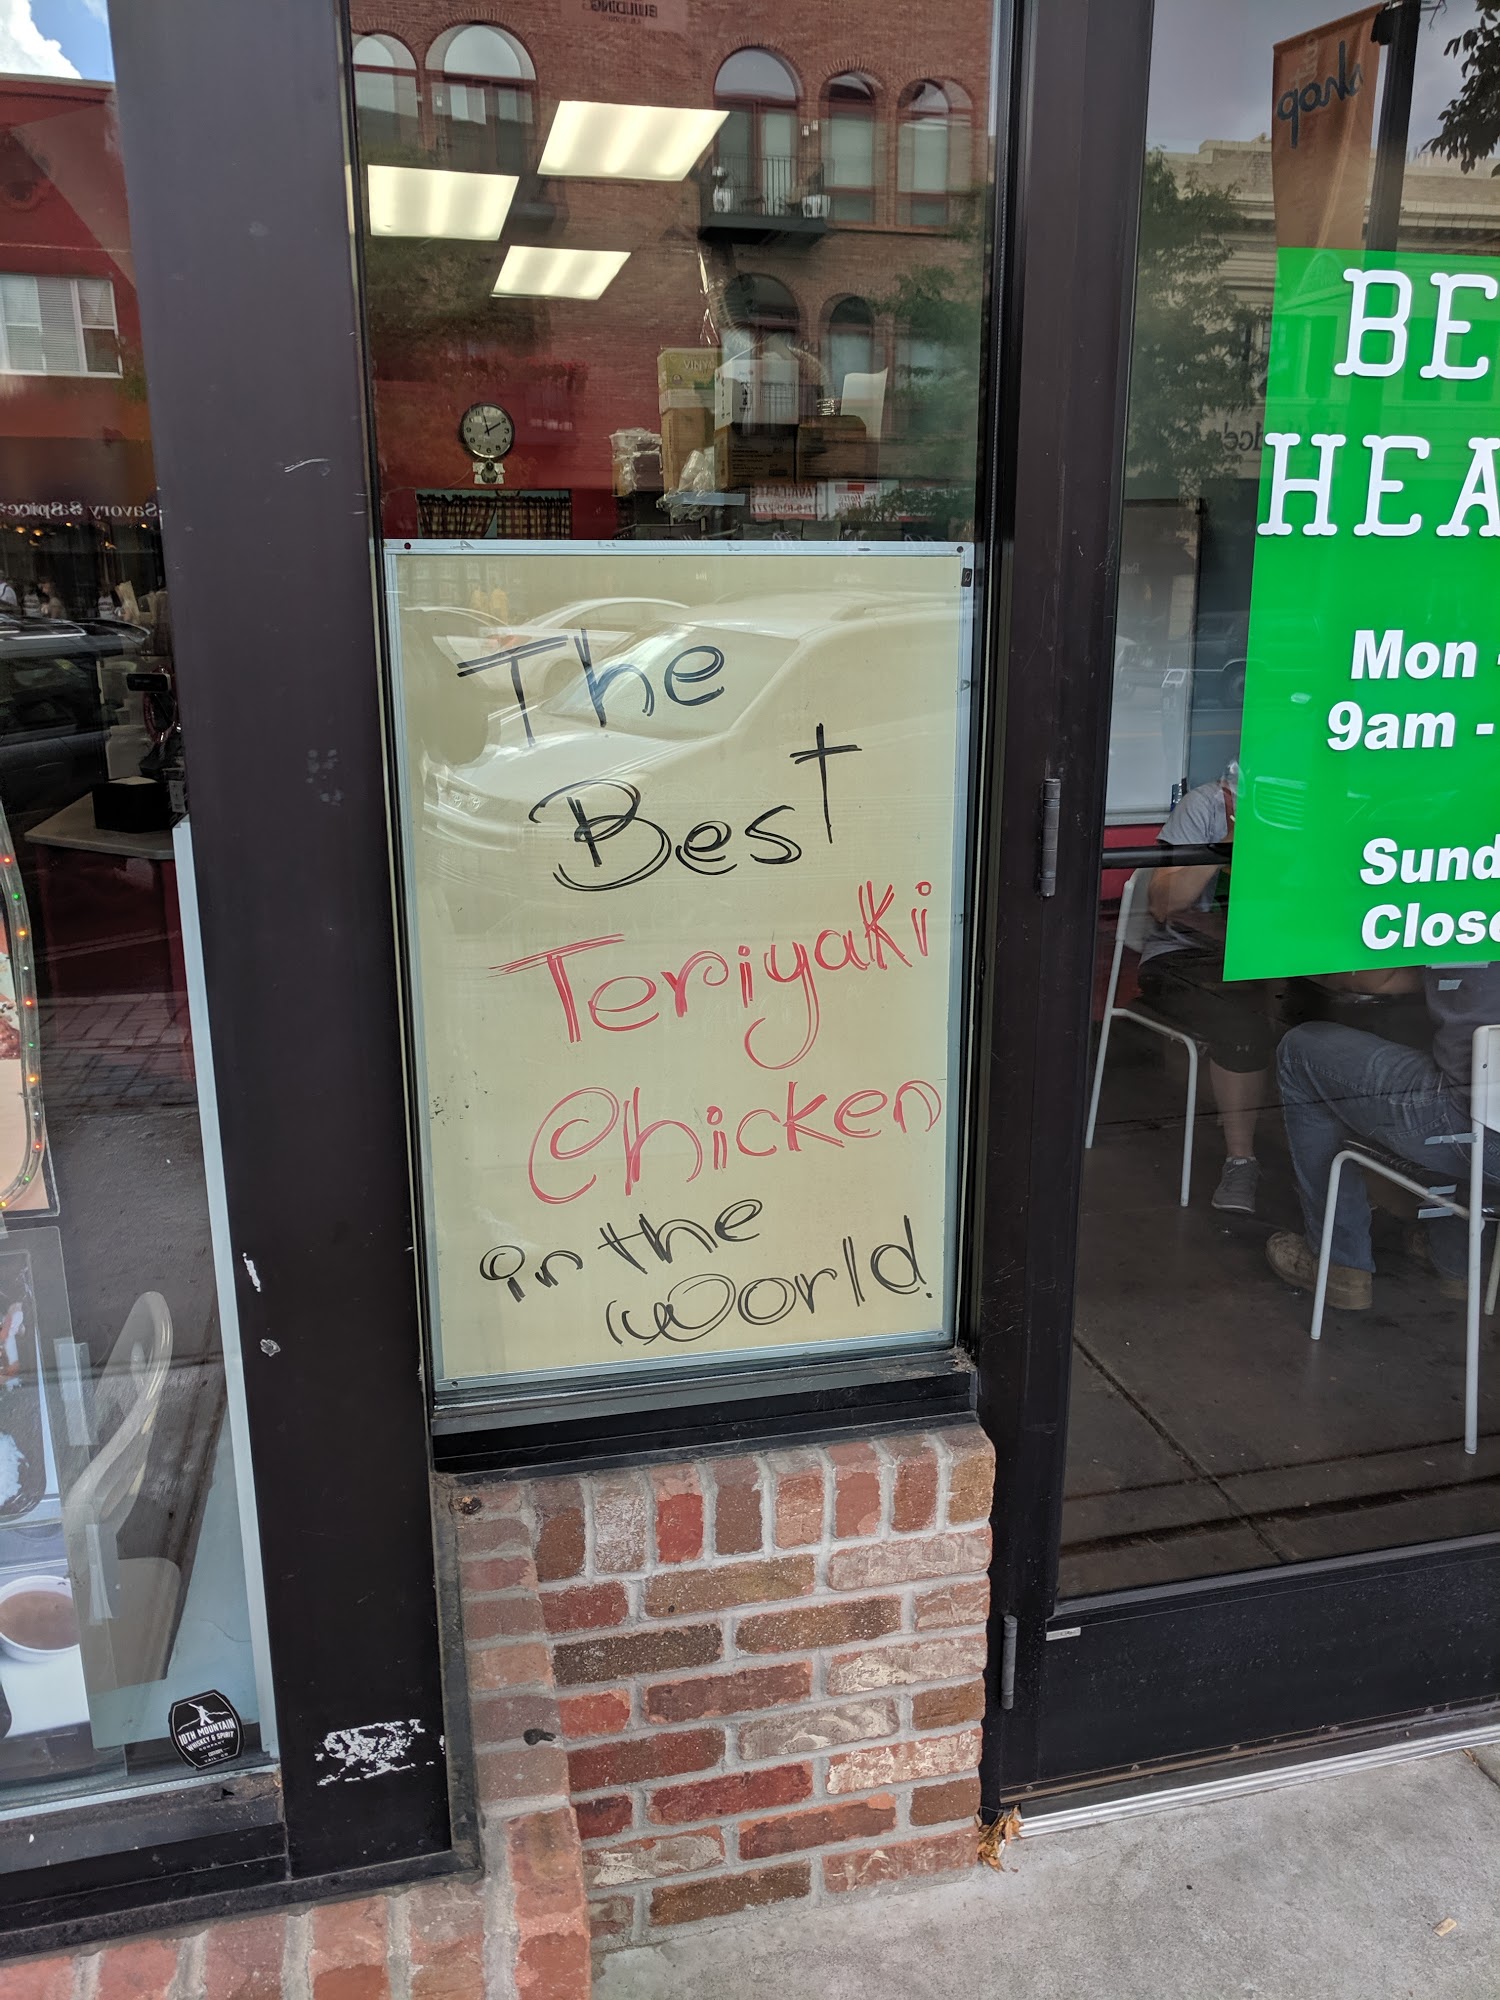 The
Best
Teriyaki
Chicken
in the
World.
BE
HEA
Mon -
9am -
Sund
Close
Savory & Spice
10TH MOUNTAIN
WHISKEY & SPIRIT
COMPANY